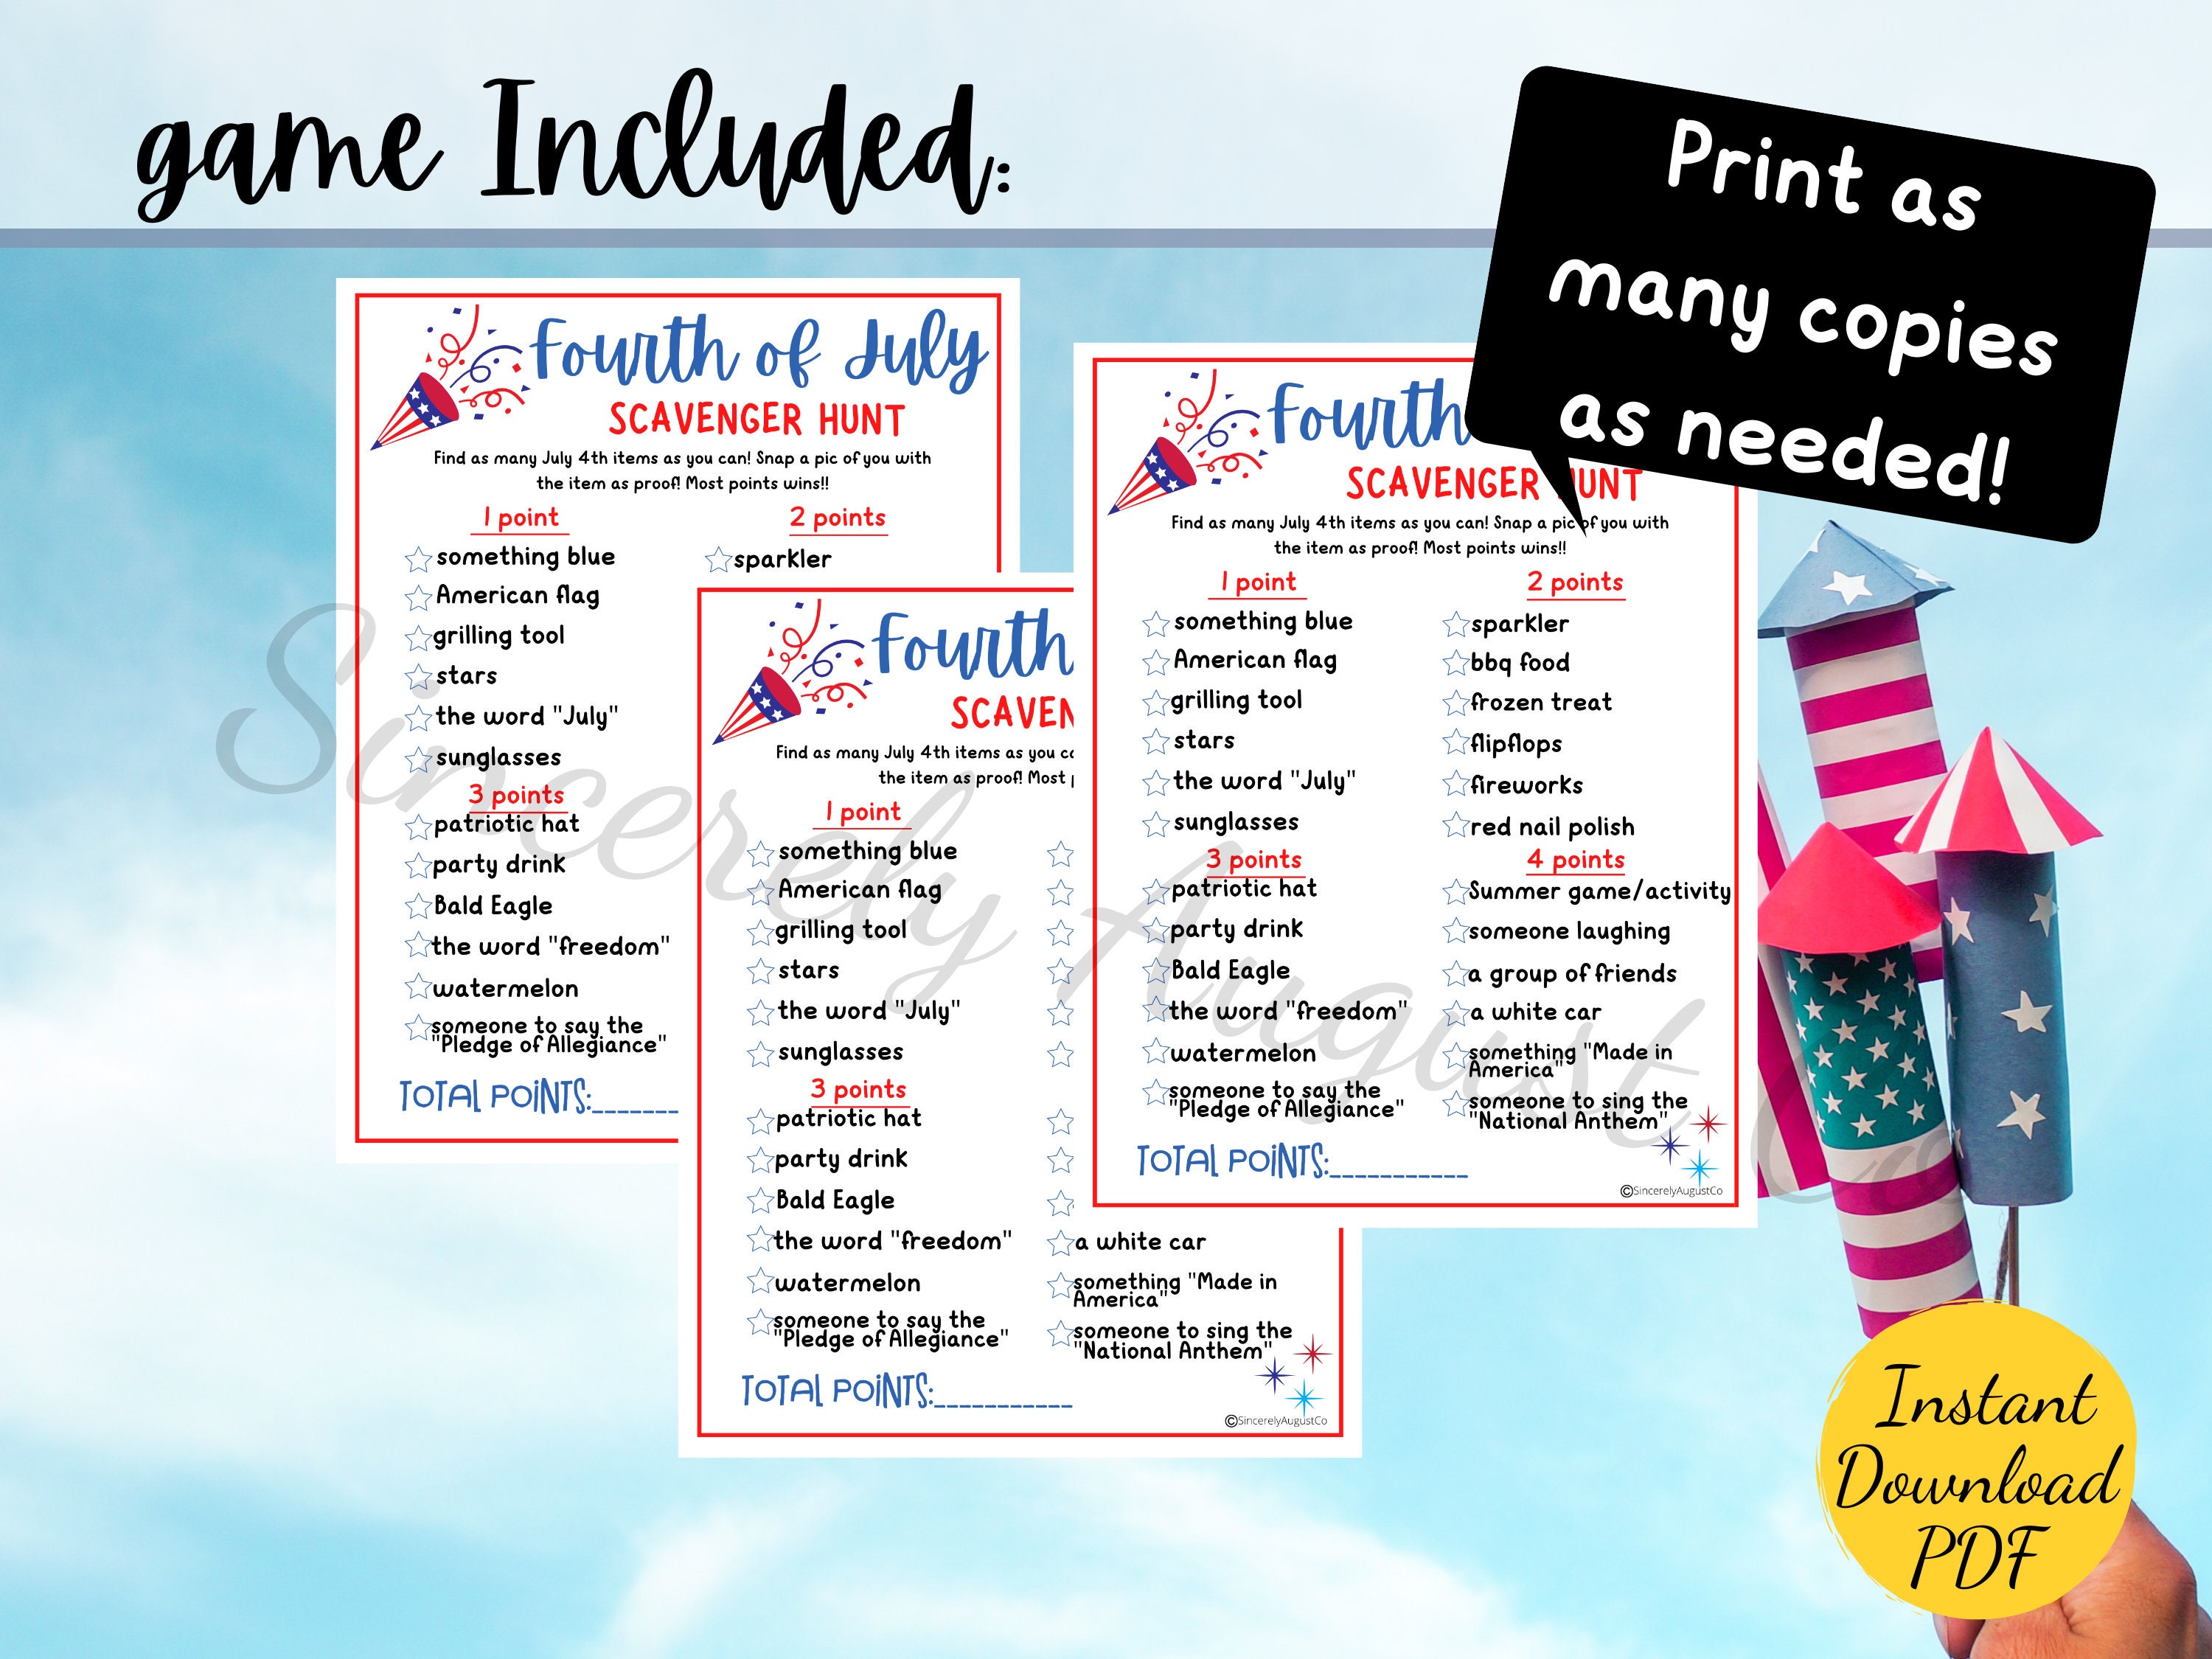 game Included:
Print as
many copies
as needed!
Fourth of July
SCAVENGER HUNT
Find as many July 4th items as you can! Snap a pic of you with
the item as proof! Most points wins!!
1 point
something blue
American flag
grilling tool
stars
the word "July"
sunglasses
2 points
sparkler
3 points
patriotic hat
party drink
Bald Eagle
the word "freedom"
watermelon
someone to say the
"Pledge of Allegiance"
TOTAL POINTS:_______
Fourth
SCAVEN
Find as many July 4th items as you ca
the item as proof! Most
1 point
something blue
American flag
grilling tool
stars
the word "July"
sunglasses
3 points
patriotic hat
party drink
Bald Eagle
the word "freedom"
watermelon
someone to say the
"Pledge of Allegiance"
a white car
something "Made in
America"
someone to sing the
"National Anthem"
TOTAL POINTS:___________
©SincerelyAugustCo
Fourth
SCAVENGER HUNT
Find as many July 4th items as you can! Snap a pic of you with
the item as proof! Most points wins!!
1 point
something blue
American flag
grilling tool
stars
the word "July"
sunglasses
2 points
sparkler
bbq food
frozen treat
flipflops
fireworks
red nail polish
3 points
patriotic hat
party drink
Bald Eagle
the word "freedom"
watermelon
someone to say the
"Pledge of Allegiance"
4 points
Summer game/activity
someone laughing
a group of friends
a white car
something "Made in
America"
someone to sing the
"National Anthem"
TOTAL POINTS:___________
©SincerelyAugustCo
Sincerely August Co
Instant
Download
PDF